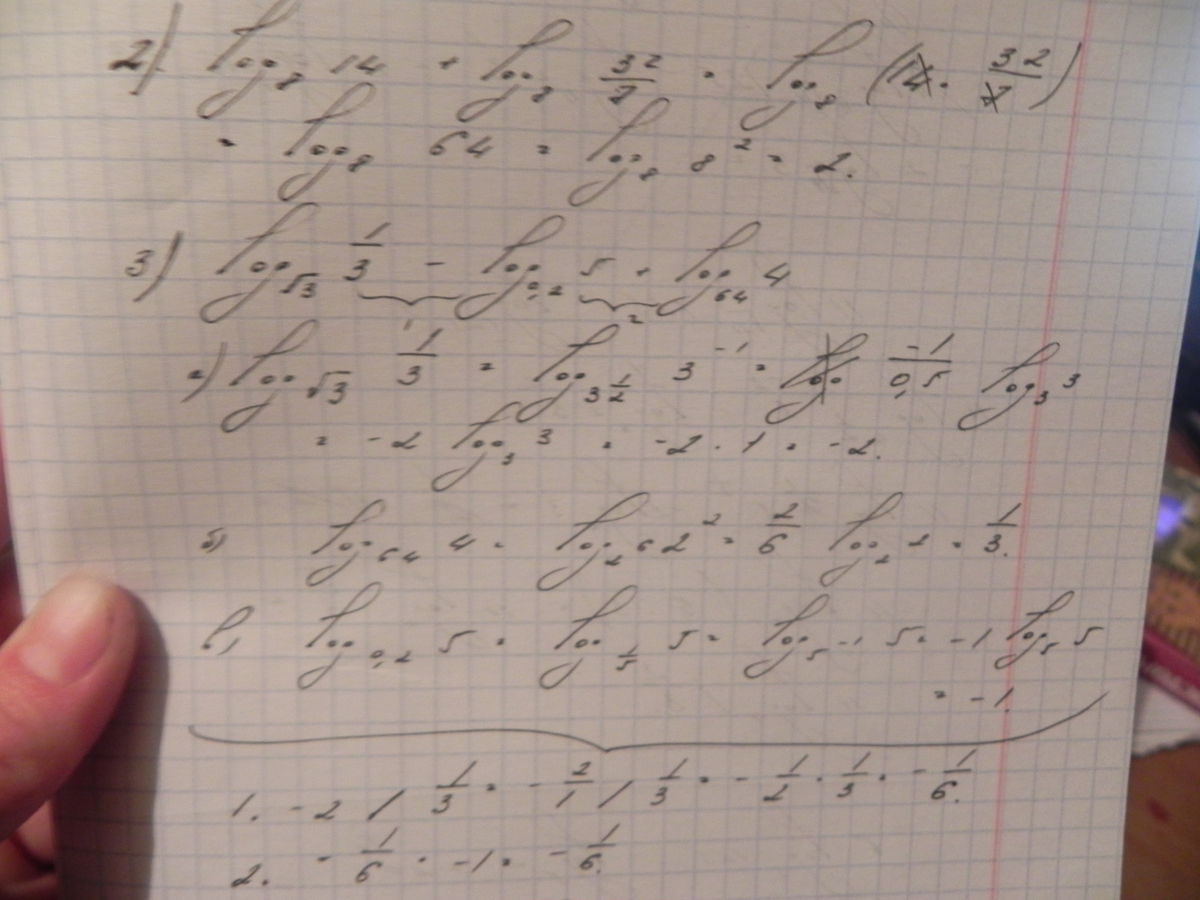 2) log₈ 14 + log₈ 32/7 = log₈ (14 · 32/7)
= log₈ 64 = log₈ 8² = 2.
3) log_√3 1/3 - log_0,2 5 + log₆₄ 4
1 2
а) log_√3 1/3 = log_3^1/2 3⁻¹ = -1/0,5 log₃ 3
= -2 log₃ 3 = -2 · 1 = -2.
б) log₆₄ 4 = log_2^6 2² = 2/6 log₂ 2 = 1/3.
в) log_0,2 5 = log_1/5 5 = log_5^-1 5 = -1 log₅ 5
= -1.
1. -2 / 1/3 = -2/1 / 1/3 = -1/2 · 1/3 = -1/6.
2. -1/6 · -1 = -1/6.